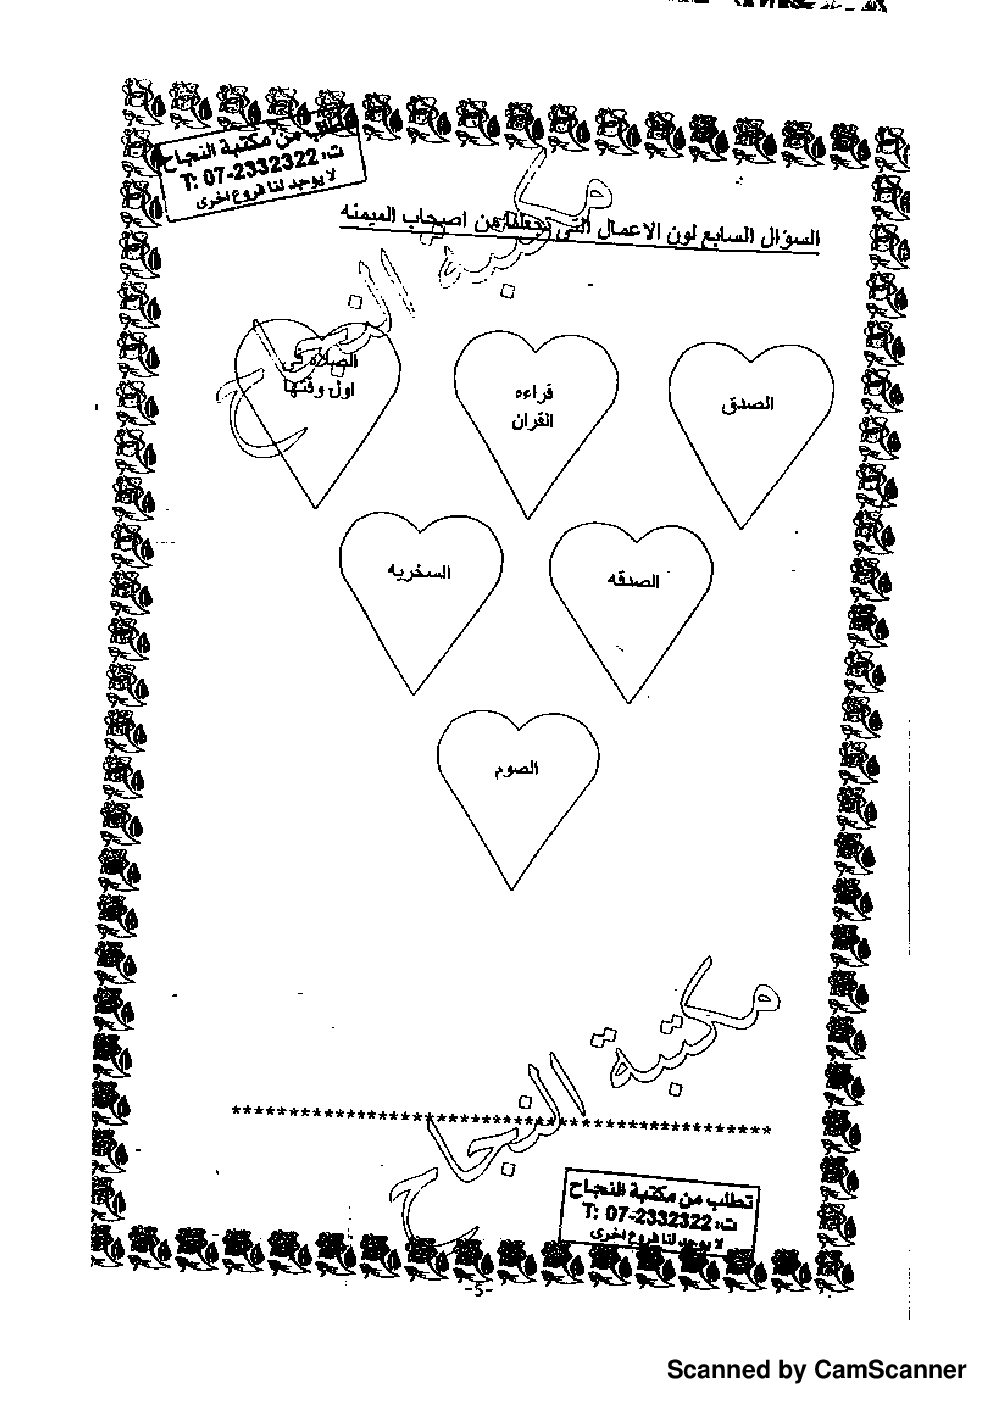 تطلب من مكتبة النجاح
ت: 2332322-07 :T
لا يوجد لنا فروع اخرى
السؤال السابع لون الاعمال التي تجعلنا من اصحاب الميمنه
الصدق
قراءه
القران
الصلاة في
اول وقتها
الصدقه
السخريه
الصوم
مكتبة النجاح
مكتبة النجاح
****************************************************
تطلب من مكتبة النجاح
ت: 2332322-07 :T
لا يوجد لنا فروع اخرى
-5-
Scanned by CamScanner